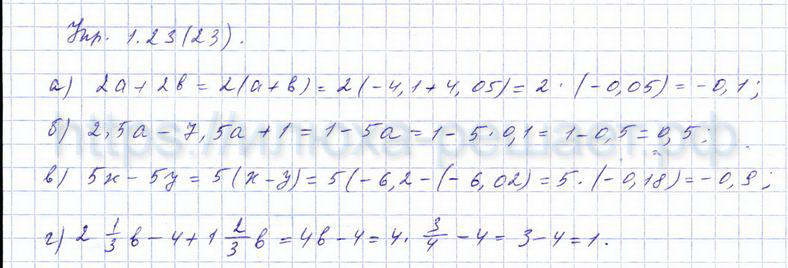 Упр. 1.23(23).
а) 2а + 2в = 2(а+в) = 2(-4,1+4,05) = 2·(-0,05) = -0,1;
б) 2,5а - 7,5а + 1 = 1 - 5а = 1 - 5·0,1 = 1 - 0,5 = 0,5;
https://илюха-решает.рф
в) 5х - 5у = 5(х-у) = 5(-6,2-(-6,02) = 5·(-0,18) = -0,9;
г) 2 1/3 в - 4 + 1 2/3 в = 4в - 4 = 4·3/4 - 4 = 3 - 4 = 1.